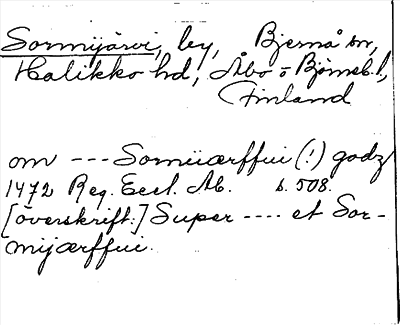 Sormijärvi, by, Bjernå sn,
Halikko hd, Åbo o Björneb. l,
Finland
om --- Somiiærffui (!) godz
1472 Reg. Eccl. Ab. s. 508.
[överskrift:] Super ---- et Sor-
mijærffui.